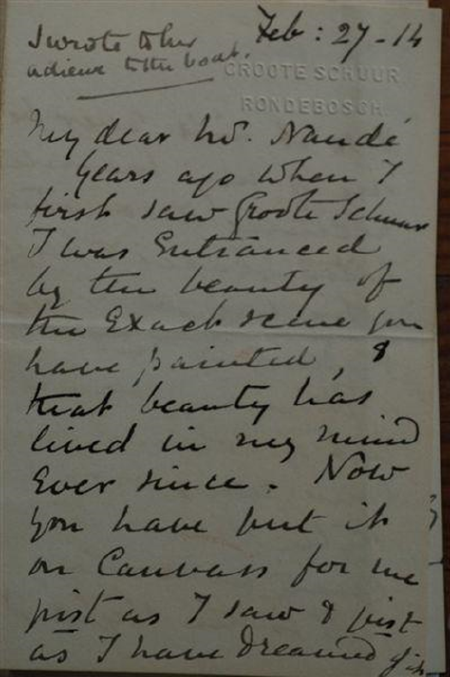 I wrote to her
adieux to the boat.
Feb: 27-14
GROOTE SCHUUR
RONDEBOSCH
My dear Mr. Naudé
Years ago when I
first saw Groote Schuur
I was Entranced
by the beauty of
the Exact scene you
have painted, &
that beauty has
lived in my mind
Ever since. Now
you have put it
on Canvass for me
just as I saw & just
as I have dreamed of it